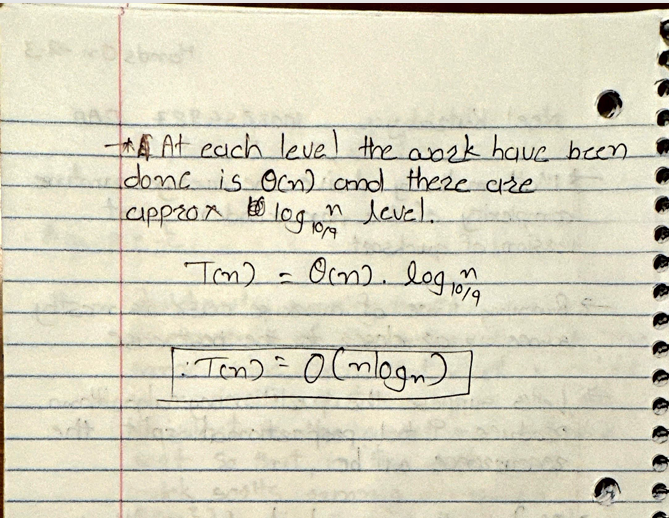 At each level the work have been
done is Θ(n) and there are
approx log 10/9 n level.
T(n) = Θ(n) . log 10/9 n
∴ T(n) = O(n log n)